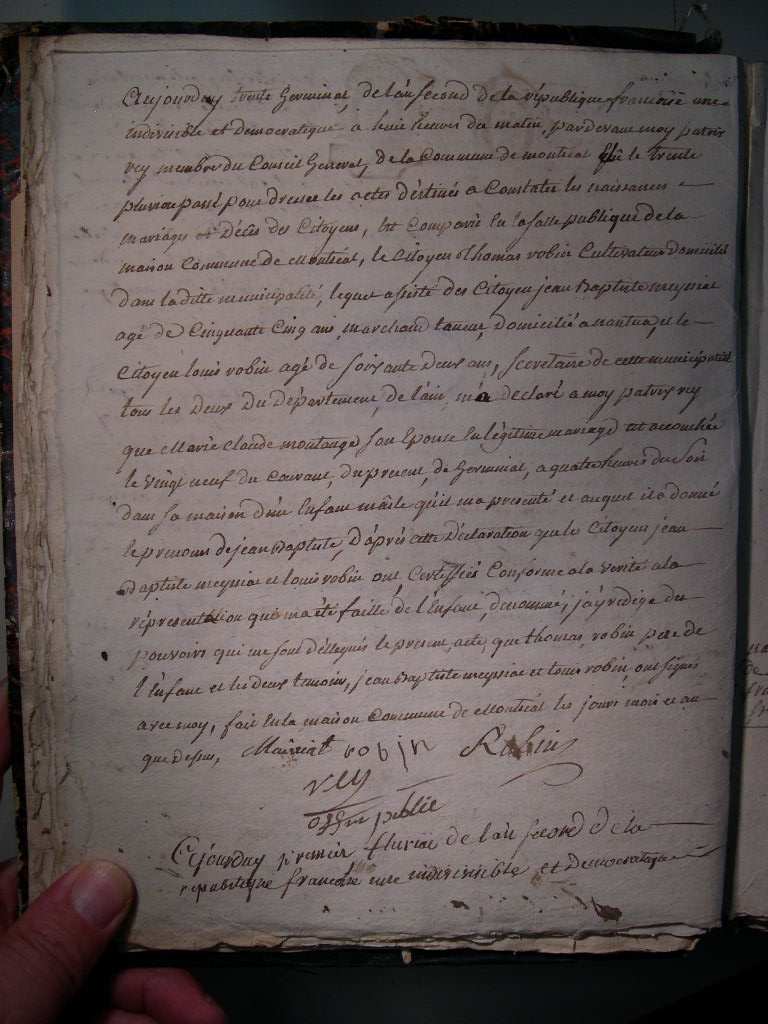 Cujourduy trente Germinal, de lan second de la république francoise une
indivisible et democratique a huit heures du matin, pardevant moy patris
rey membre du Conseil General, de la Commune de montreal élû le trente
pluviose passé pour dresser les actes déstinés a Constater les naissances
mariages et Décès des Citoyens, est Comparus En la salle publique de la
maison Commune de Montréal, le Citoyen thomas robin Cultivateur Domicilié
dans laditte municipalité, lequel assisté des Citoyen jean Baptiste meyniat
agé de Cinquante Cinq ans, marchand taneur, Domicilié a nantua, et le
Citoyen louis robin agé de soixante Deux ans, secretaire de cette municipalité
tous les Deux Du Département, de lain, m'a declaré a moy patris rey
que Marie Claude montange son Epouse En légitime mariage est accouchée
le vingt neuf du Courant, du present, de Germinal, a quatre heures du Soir
dans sa maison d'un Enfant mâle qu'il ma présenté et auquel il a donné
le prenom de jean Baptiste, D'après cette Déclaration que le Citoyens jean
Baptiste meyniat et louis robin ont Certiffiés Conforme a la vérité a la
réprésentation qui ma été faitte de l'Enfant, denommé, j'ay rédigé des
pouvoirs qui me sont délégués le present, acte, que thomas robin pere de
l'Enfant et les deux temoins, jean Baptiste meyniat et louis robin, ont signés
avec moy, fait En la maison Commune de Montréal les jours mois et an
que dessus,
robin Robin
rey
offier public
Cejourduy premier de lan second de la
republique francoise une indivisible et Democratique